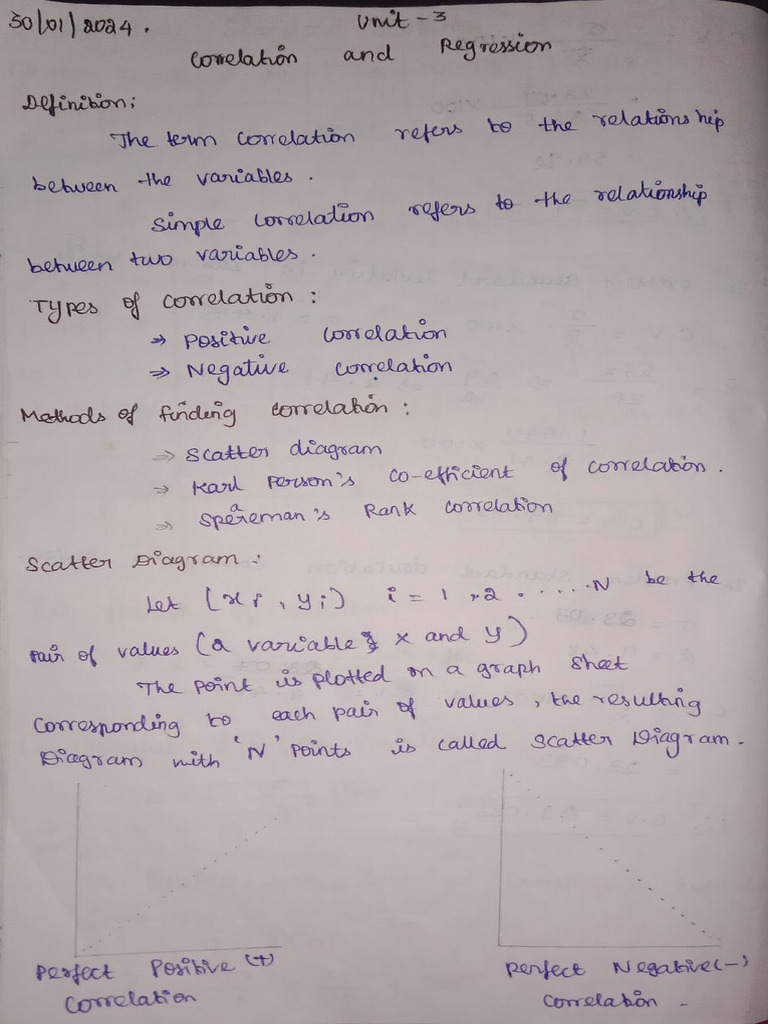 30/01/2024.
Unit-3
Correlation and Regression
Definition:
The term correlation refers to the relationship
between the variables.
Simple correlation refers to the relationship
between two variables.
Types of correlation:
⇒ Positive correlation
⇒ Negative correlation
Methods of finding correlation:
⇒ Scatter diagram
⇒ Karl Person's co-efficient of correlation.
⇒ Speareman's Rank correlation
Scatter Diagram:
Let (xi, yi) i = 1, 2 ..... N be the
pair of values (a variable x and y)
The point is plotted on a graph sheet
corresponding to each pair of values, the resulting
Diagram with 'N' points is called scatter Diagram.
Perfect Positive (+)
Correlation
Perfect Negative (-)
Correlation.